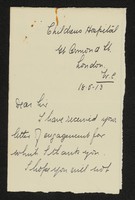 Childrens Hospital
Gt Ormond St
London.
W.C
18-5-13
Dear Sir
I have received your
letter of engagement for
which I thank you
I hope you will not